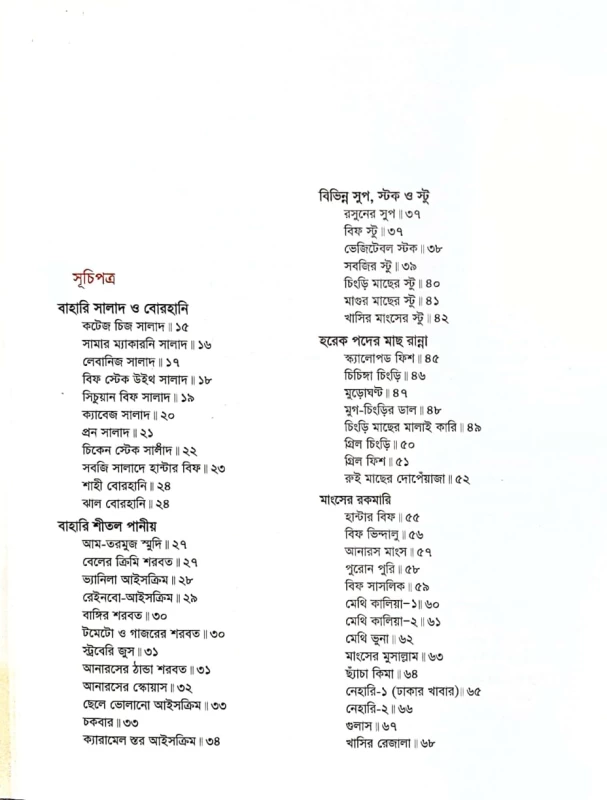 সূচিপত্র
বাহারি সালাদ ও বোরহানি
কটেজ চিজ সালাদ ॥ ১৫
সামার ম্যাকারনি সালাদ ॥ ১৬
লেবানিজ সালাদ ॥ ১৭
বিফ স্টেক উইথ সালাদ ॥ ১৮
সিচুয়ান বিফ সালাদ ॥ ১৯
ক্যাবেজ সালাদ ॥ ২০
প্রন সালাদ ॥ ২১
চিকেন স্টেক সালাদ ॥ ২২
সবজি সালাদে হান্টার বিফ ॥ ২৩
শাহী বোরহানি ॥ ২৪
ঝাল বোরহানি ॥ ২৪
বাহারি শীতল পানীয়
আম-তরমুজ স্মুদি ॥ ২৭
বেলের ক্রিমি শরবত ॥ ২৭
ভ্যানিলা আইসক্রিম ॥ ২৮
রেইনবো-আইসক্রিম ॥ ২৯
বাঙ্গির শরবত ॥ ৩০
টমেটো ও গাজরের শরবত ॥ ৩০
স্ট্রবেরি জুস ॥ ৩১
আনারসের ঠান্ডা শরবত ॥ ৩১
আনারসের স্কোয়াস ॥ ৩২
ছেলে ভোলানো আইসক্রিম ॥ ৩৩
চকবার ॥ ৩৩
ক্যারামেল স্তর আইসক্রিম ॥ ৩৪
বিভিন্ন সুপ, স্টক ও স্টু
রসুনের সুপ ॥ ৩৭
বিফ স্টু ॥ ৩৭
ভেজিটেবল স্টক ॥ ৩৮
সবজির স্টু ॥ ৩৯
চিংড়ি মাছের স্টু ॥ ৪০
মাগুর মাছের স্টু ॥ ৪১
খাসির মাংসের স্টু ॥ ৪২
হরেক পদের মাছ রান্না
স্ক্যালোপড ফিশ ॥ ৪৫
চিচিঙ্গা চিংড়ি ॥ ৪৬
মুড়োঘণ্ট ॥ ৪৭
মুগ-চিংড়ির ডাল ॥ ৪৮
চিংড়ি মাছের মালাই কারি ॥ ৪৯
গ্রিল চিংড়ি ॥ ৫০
গ্রিল ফিশ ॥ ৫১
রুই মাছের দোপেঁয়াজা ॥ ৫২
মাংসের রকমারি
হান্টার বিফ ॥ ৫৫
বিফ ভিন্দালু ॥ ৫৬
আনারস মাংস ॥ ৫৭
পুরোন পুরি ॥ ৫৮
বিফ সাসলিক ॥ ৫৯
মেথি কালিয়া-১ ॥ ৬০
মেথি কালিয়া-২ ॥ ৬১
মেথি ভুনা ॥ ৬২
মাংসের মুসাল্লাম ॥ ৬৩
ছ্যাঁচা কিমা ॥ ৬৪
নেহারি-১ (ঢাকার খাবার) ॥ ৬৫
নেহারি-২ ॥ ৬৬
গুলাস ॥ ৬৭
খাসির রেজালা ॥ ৬৮